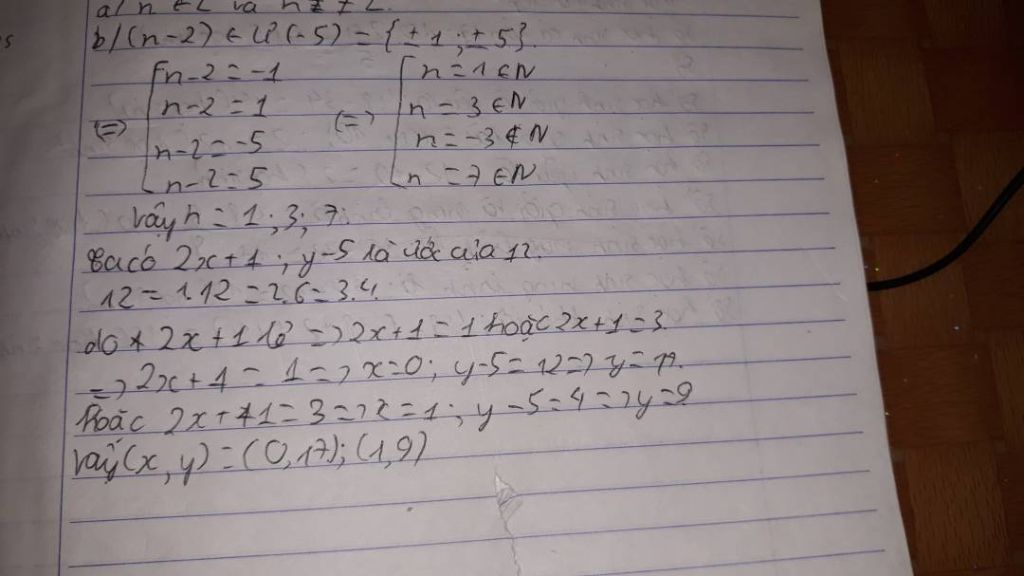 a) n ∈ Z và n ≠ 2.
b) (n-2) ∈ Ư(-5) = {±1; ±5}.
⇔ [n-2 = -1 ⇔ [n = 1 ∈ N
n-2 = 1 n = 3 ∈ N
n-2 = -5 n = -3 ∉ N
n-2 = 5 n = 7 ∈ N
Vậy n = 1; 3; 7.
Ta có 2x+1; y-5 là ước của 12.
12 = 1.12 = 2.6 = 3.4.
do 2x+1 lẻ => 2x+1 = 1 hoặc 2x+1 = 3.
=> 2x+1 = 1 => x=0; y-5 = 12 => y = 17.
hoặc 2x+1 = 3 => x = 1; y-5 = 4 => y = 9
Vậy (x, y) = (0,17); (1,9)